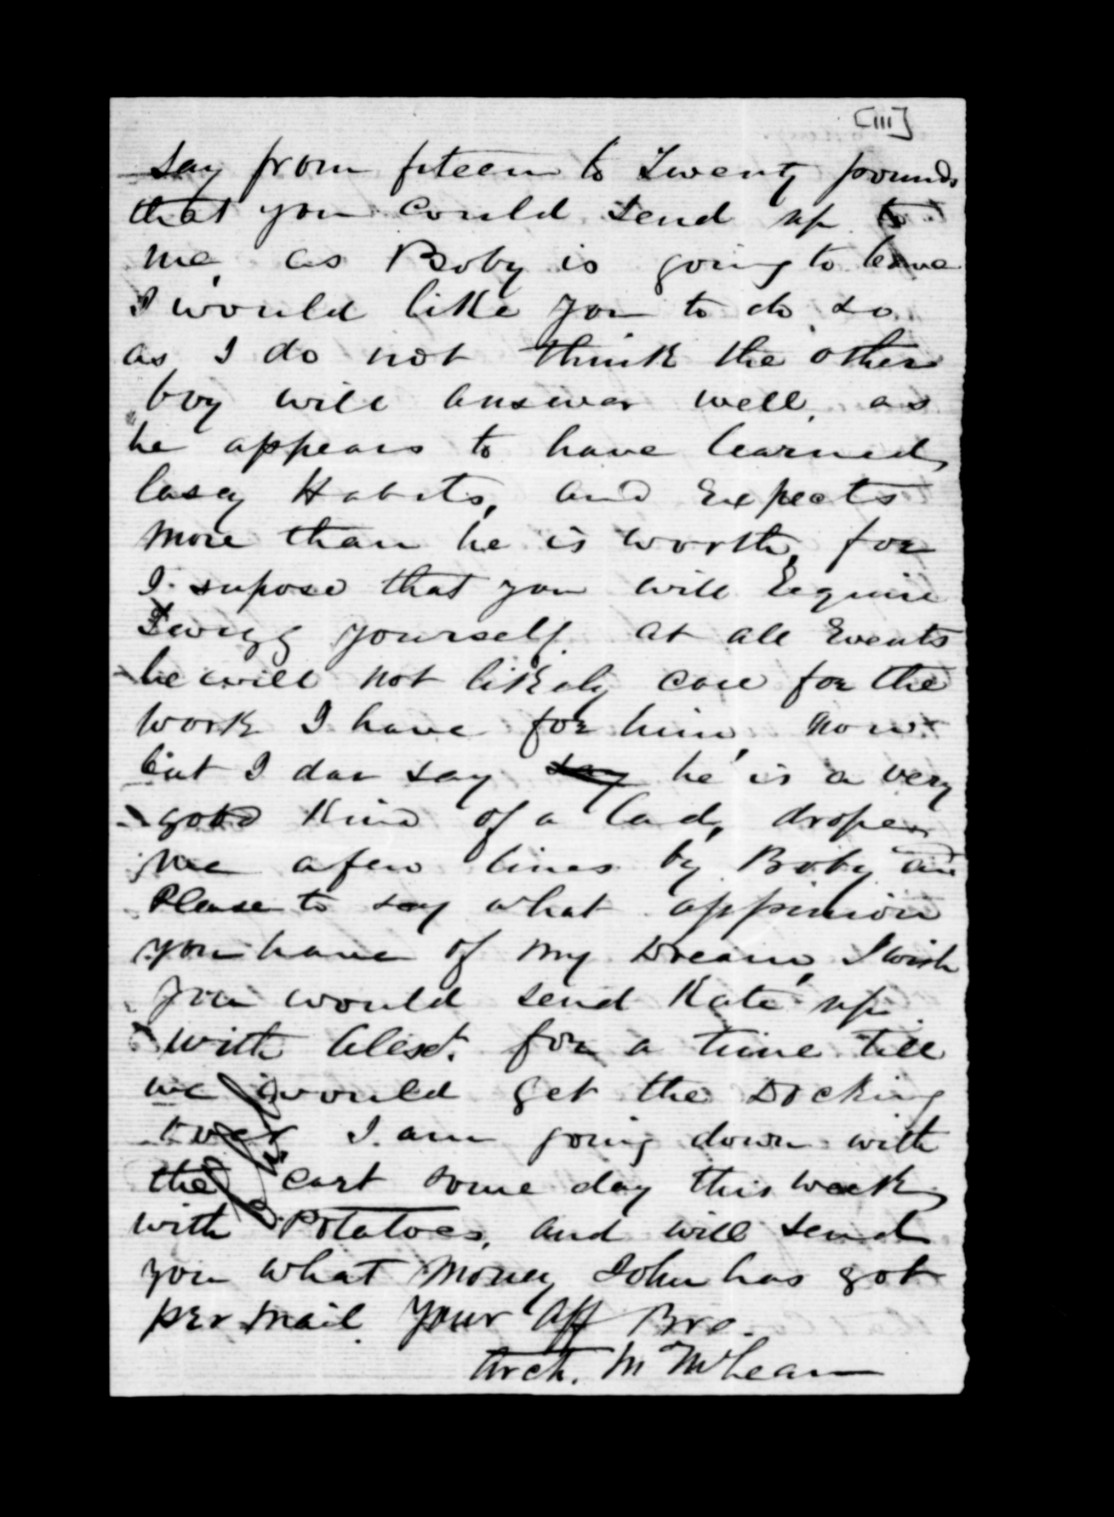 [III]
say from fiteen to Twenty pounds
that you could send up to
me, as Boby is going to leave
I would like you to do so
as I do not think the other
boy will answer well, as
he appears to have learned
lasey Habits, and Expects
more than he is worth, for
I supose that you will Require
yourself. at all Events
he will not likely care for the
work I have for him, now.
but I dar say say he is a very
good Kind of a lad, drope
me a few lines by Boby and
Please to say what oppinion
you have of my Dream, I wish
you would send Kate up
with Alexr. for a time till
we would get the Docking
over I am going down with
the cart some day this week
with Potatoes, and will send
you what Money John has got
per mail Your Aff Bro.
Arch. M McLean